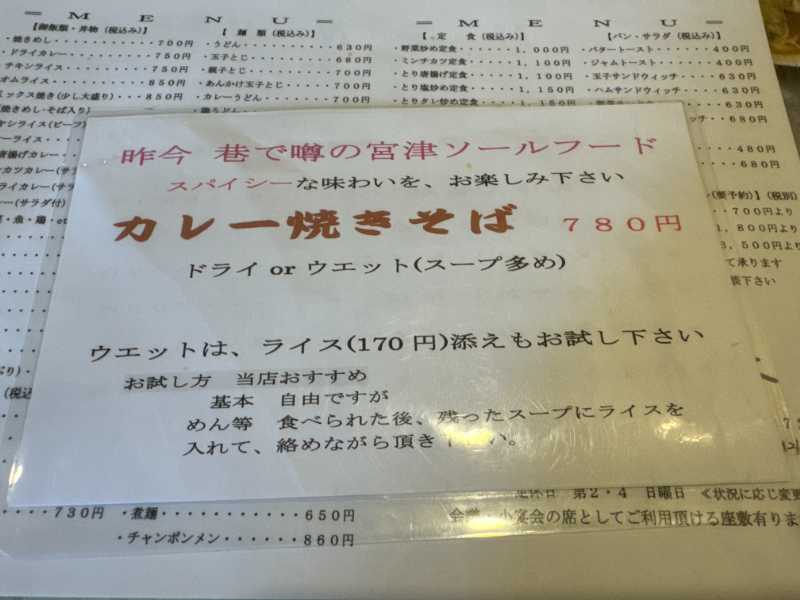 ＝ＭＥＮＵ＝
＝ＭＥＮＵ＝
【御飯類・丼物（税込み）】
・焼きめし・・・・・・・・・・・７００円
・ドライカレー・・・・・・・・・７５０円
チキンライス・・・・・・・・７５０円
オムライス・・・・・・・・・８５０円
ミックス焼き（少し大盛り）・・８５０円
（焼きめし・そば入り）
ライス（ビーフ）
唐揚げカレー（サ
カツカレー（サラ
ライカレー（サラ
ー（サラダ付）
【 麺 類 （税込み）】
・うどん・・・・・・・・・・６３０円
・玉子とじ・・・・・・・・・６８０円
・親子とじ・・・・・・・・・７００円
・あんかけ玉子とじ・・・・・７００円
・カレーうどん・・・・・・・７００円
【 定 食 （税込み）】
・野菜炒め定食・・・・・１，０００円
・ミンチカツ定食・・・・１，１００円
・とり唐揚げ定食・・・・１，１００円
・とり塩炒め定食・・・・１，１５０円
・とりタレ炒め定食・・・１，１５０円
【パン・サラダ（税込み）】
・バタートースト・・・・・４００円
・ジャムトースト・・・・・４００円
・玉子サンドウィッチ・・・６３０円
・ハムサンドウィッチ・・・６３０円
６３０円
ッチ・・６８０円
４８０円
６８０円
（要予約）】（税別）
７００円より
１，８００円より
３，５００円より
て承ります
昨今 巷で噂の宮津ソールフード
スパイシーな味わいを、お楽しみ下さい
カレー焼きそば ７８０円
ドライ or ウエット(スープ多め)
ウエットは、ライス(170 円)添えもお試し下さい
お試し方 当店おすすめ
基本 自由ですが
めん等 食べられた後、残ったスープにライスを
入れて、絡めながら頂き
い。
・・・・７３０円
・煮麺・・・・・・・・・・・６５０円
・チャンポンメン・・・・・・８６０円
定休日 第２・４ 日曜日 ≪状況に応じ変更
小宴会の席としてご利用頂ける座敷有りま